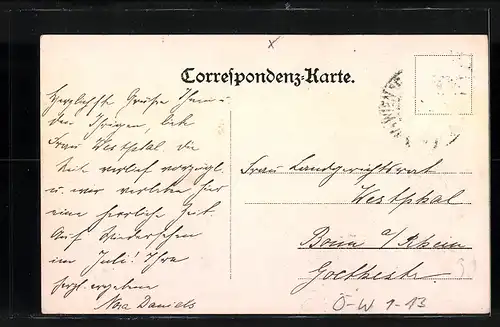 Correspondenz-Karte.
Herzlichste Grüße Ihnen u.
den Ihrigen, liebe
Frau Westphal. die
Zeit verlief vorzügl.
u. war verlebten hier
eine herrliche Zeit.
Auf Wiedersehen
im Juli! Ihre
herzl. ergebene
Nora Daniels
Frau Landgerichtsrat
Westphal
Bonn a/Rhein
Goethestr.
Ö-W 1-13